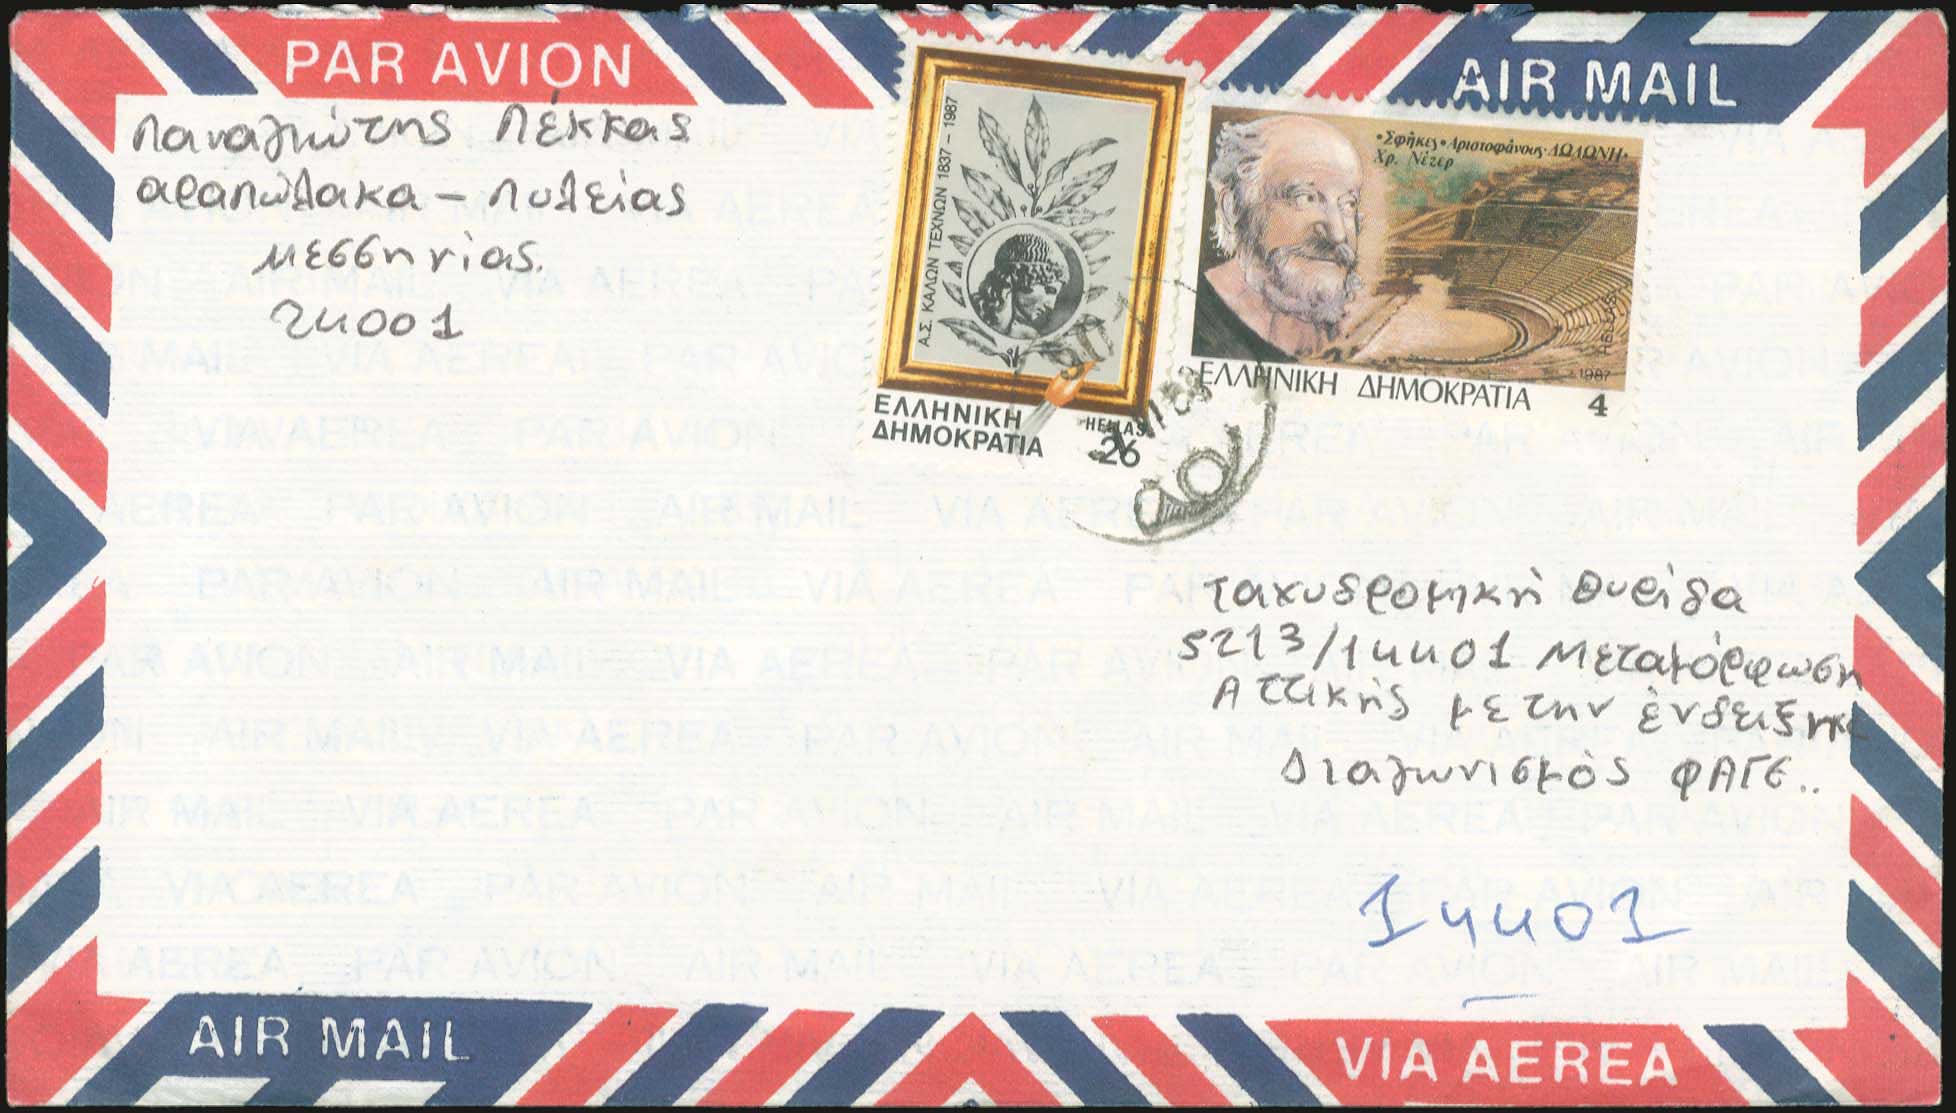 PAR AVION
AIR MAIL
Παναγιώτης Πέκκας
Αραπώλακα - Πυλείας
Μεσσηνίας.
24001
Α.Σ. ΚΑΛΩΝ ΤΕΧΝΩΝ 1837 - 1987
ΕΛΛΗΝΙΚΗ
ΔΗΜΟΚΡΑΤΙΑ
HELLAS
26
•Σφῆκες• Ἀριστοφάνους ΔΩΔΩΝΗ•
Χρ. Νέζερ
HELLAS
1987
ΕΛΛΗΝΙΚΗ ΔΗΜΟΚΡΑΤΙΑ 4
Ταχυδρομική Θυρίδα
5213/14401 Μεταμόρφωση
Αττικής με την ένδειξη
Διαγωνισμός ΦΑΓΕ..
14401
AIR MAIL
VIA AEREA